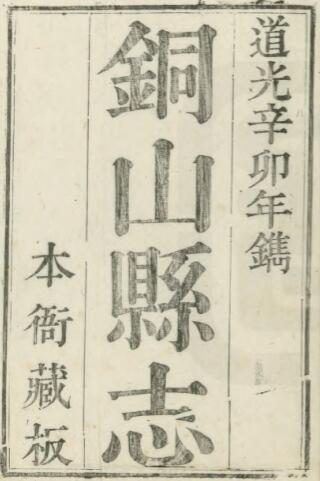 道光辛卯年鐫
銅山縣志
本衙藏板